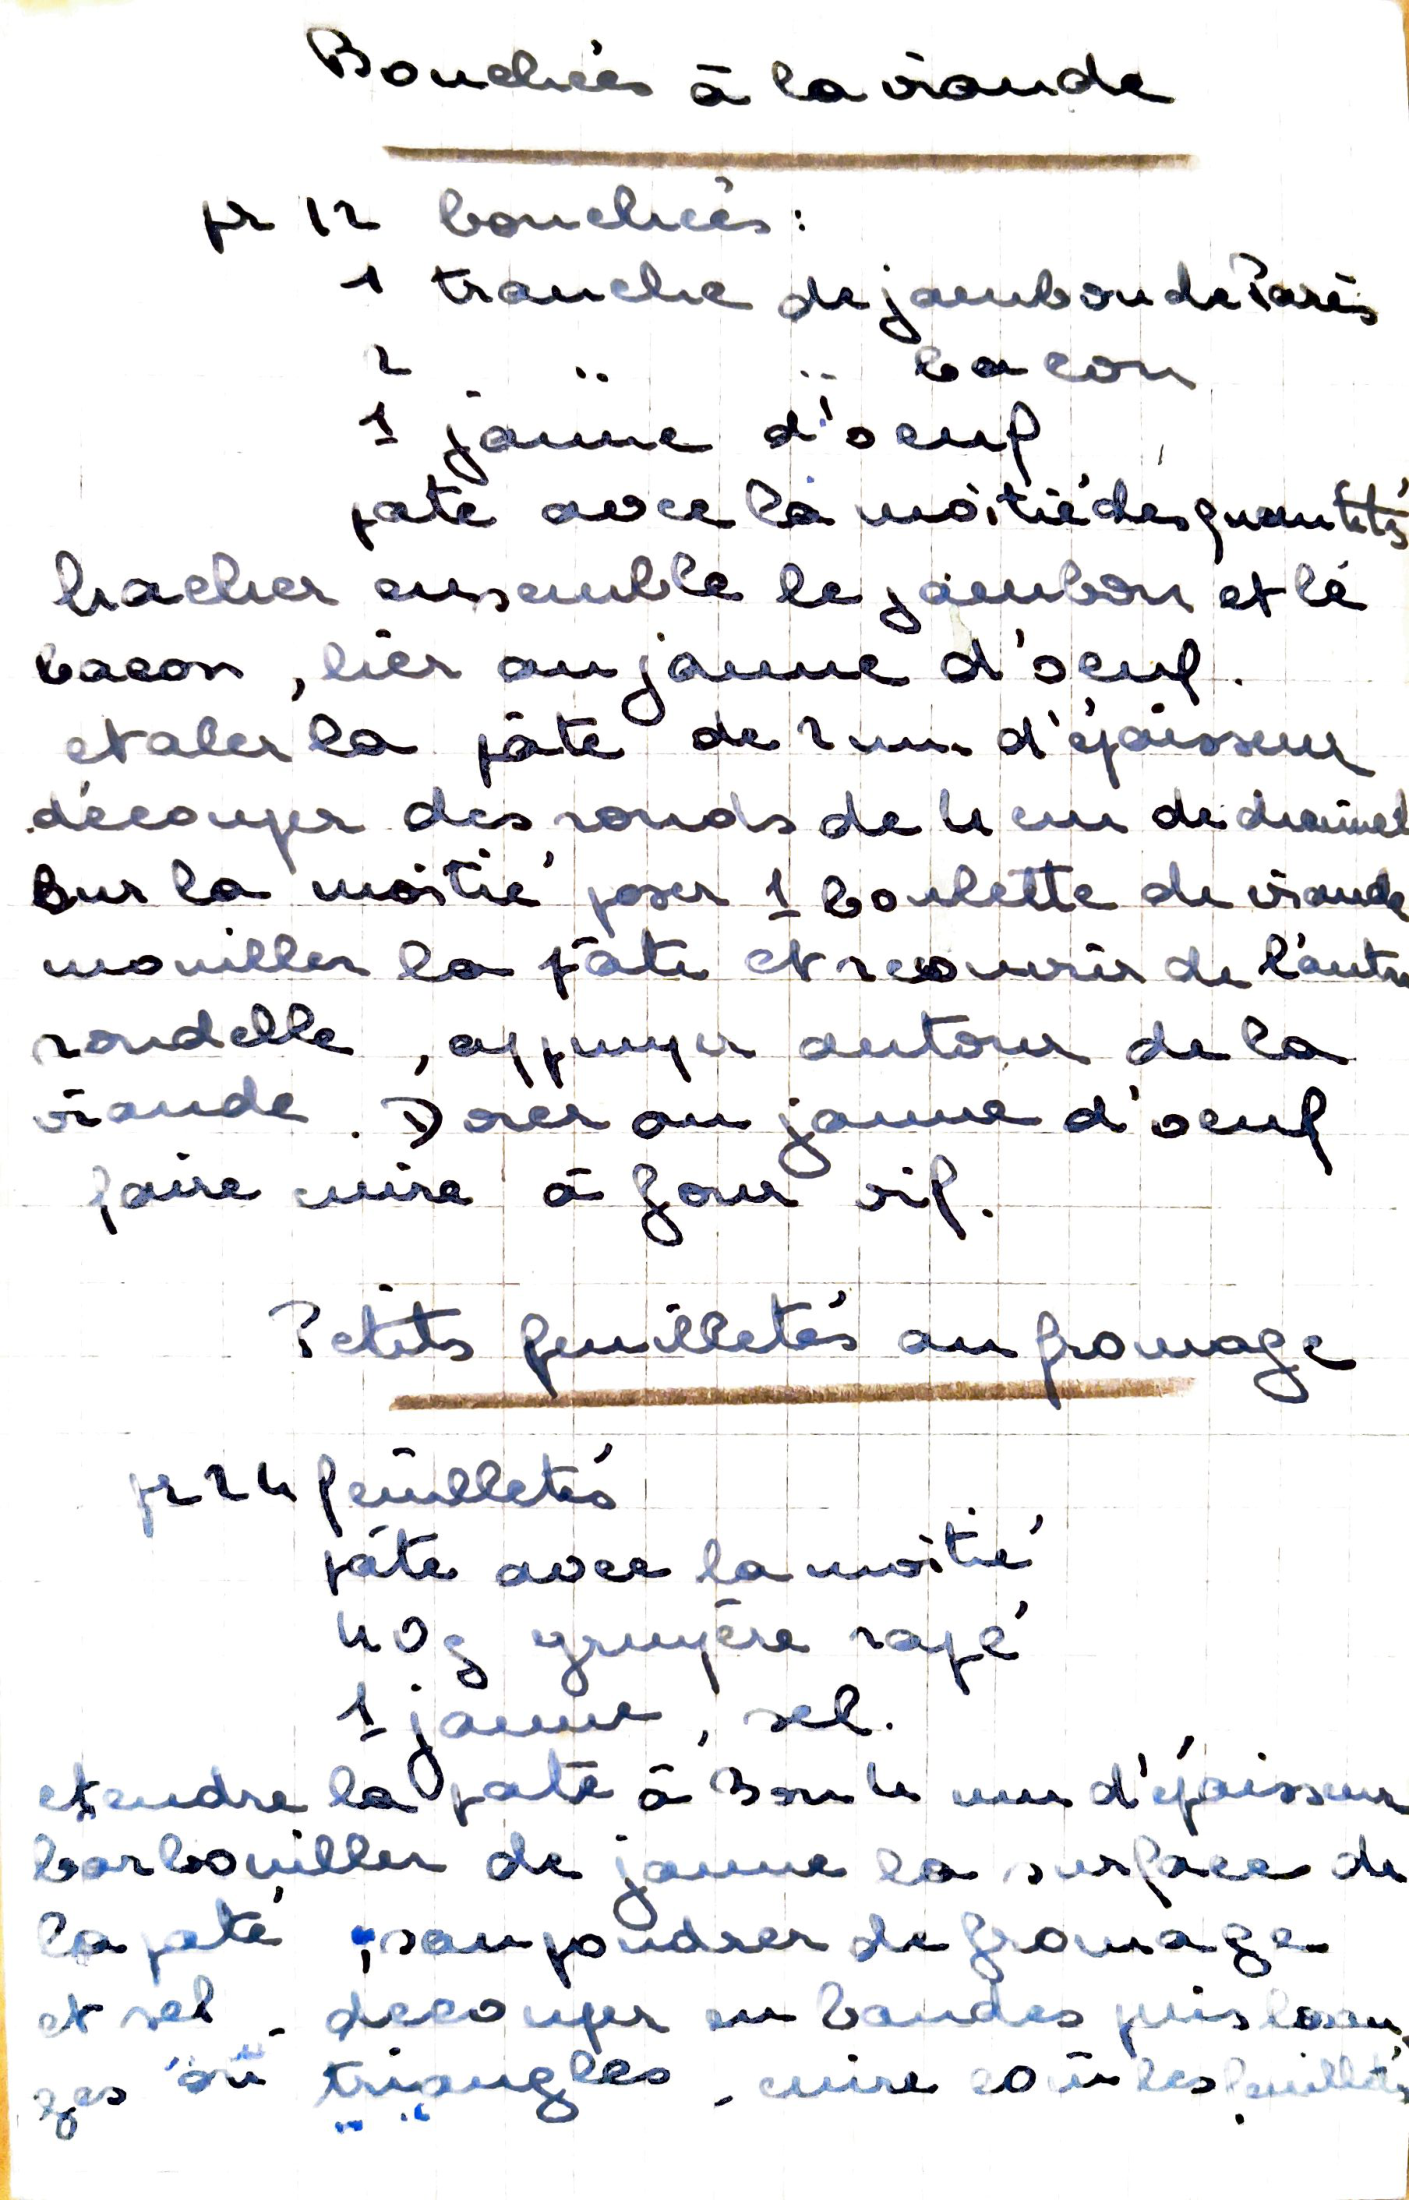 Bouchées à la viande
pr 12 bouchées :
1 tranche de jambon de Paris
2 " " bacon
1 jaune d'oeuf
pate avec la moitié des quantités
hacher ensemble le jambon et le
bacon, lier au jaune d'oeuf.
etaler la pâte de 2 mm d'épaisseur
découper des ronds de 4 cm de diamèt
Sur la moitié poser 1 boulette de viande
mouiller la pâte et recouvrir de l'autre
rondelle, appuyer autour de la
viande. Dorer au jaune d'oeuf
faire cuire à four vif.
Petits feuilletés au fromage
pr 24 feuilletés
pâte avec la moitié
40g gruyère rapé
1 jaune, sel.
etendre la pate à 3 ou 4 mm d'épaisseur
barbouiller de jaune la surface de
la pate, saupoudrer de fromage
et sel - decouper en bandes puis losan-
ges ou triangles - cuire com les feuilletés.